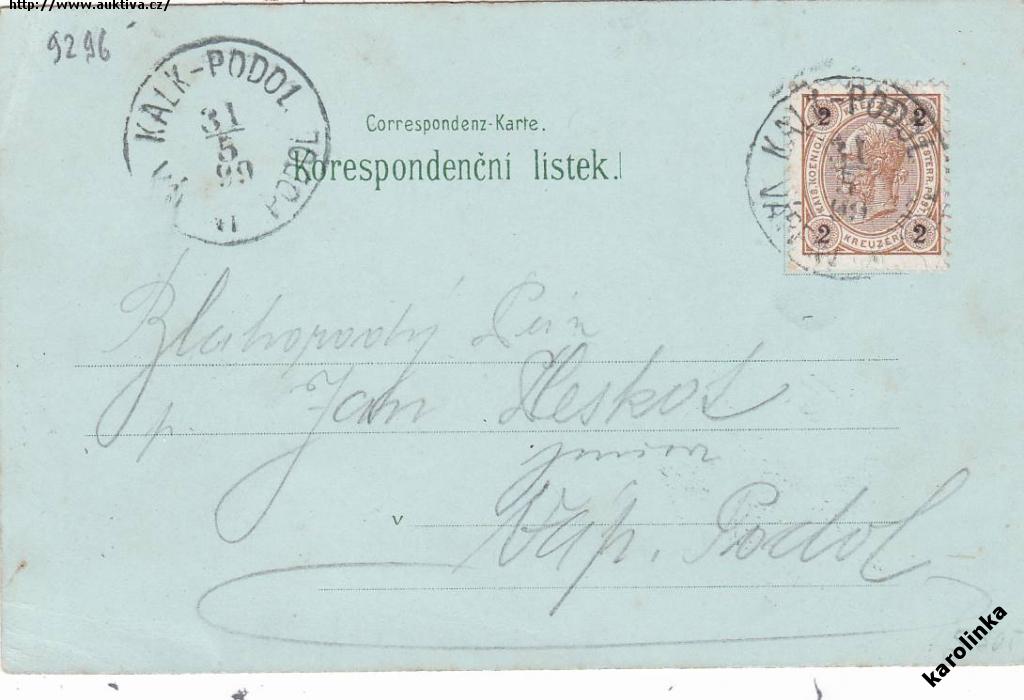 http://www.auktiva.cz/
9296
KALK-PODOL
31
5
99
PODOL
VI
Correspondenz-Karte.
Korespondenční lístek.
KALK-PODOL
31
5
99
2 2
KAIS. KOENIGL. OESTERR. POST
2 KREUZER 2
Blahorodý Pán
p. Jan Heskot
junior
v Váp. Podol
karolinka